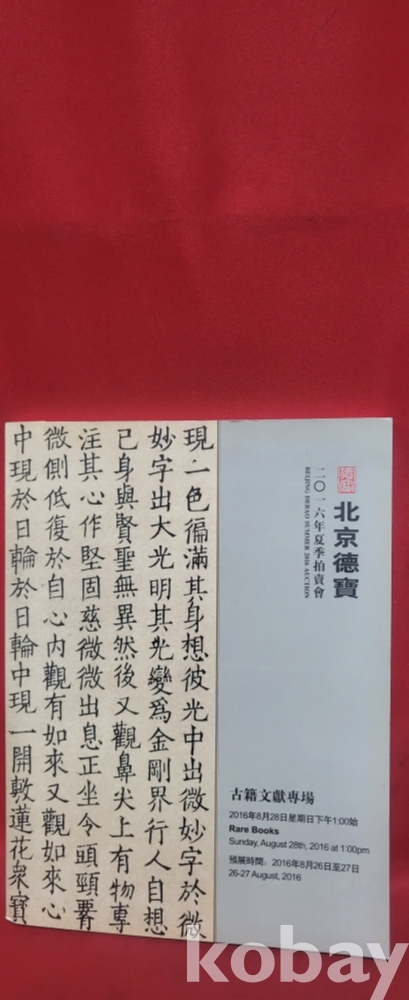 現一色徧滿其身想彼光中出微妙字於微
妙字出大光明其光變爲金剛界行人自想
己身與賢聖無異然後又觀鼻尖上有物專
注其心作堅固慈微微出息正坐令頭頸䏶
微側低復於自心內觀有如來又觀如來心
中現於日輪於日輪中現一開敷蓮花衆寶
北京德寶
二〇一六年夏季拍賣會
BEIJING DEBAO SUMMER 2016 AUCTION
古籍文獻專場
2016年8月28日星期日下午1:00始
Rare Books
Sunday, August 28th, 2016 at 1:00pm
預展時間：2016年8月26日至27日
26-27 August, 2016
kobay